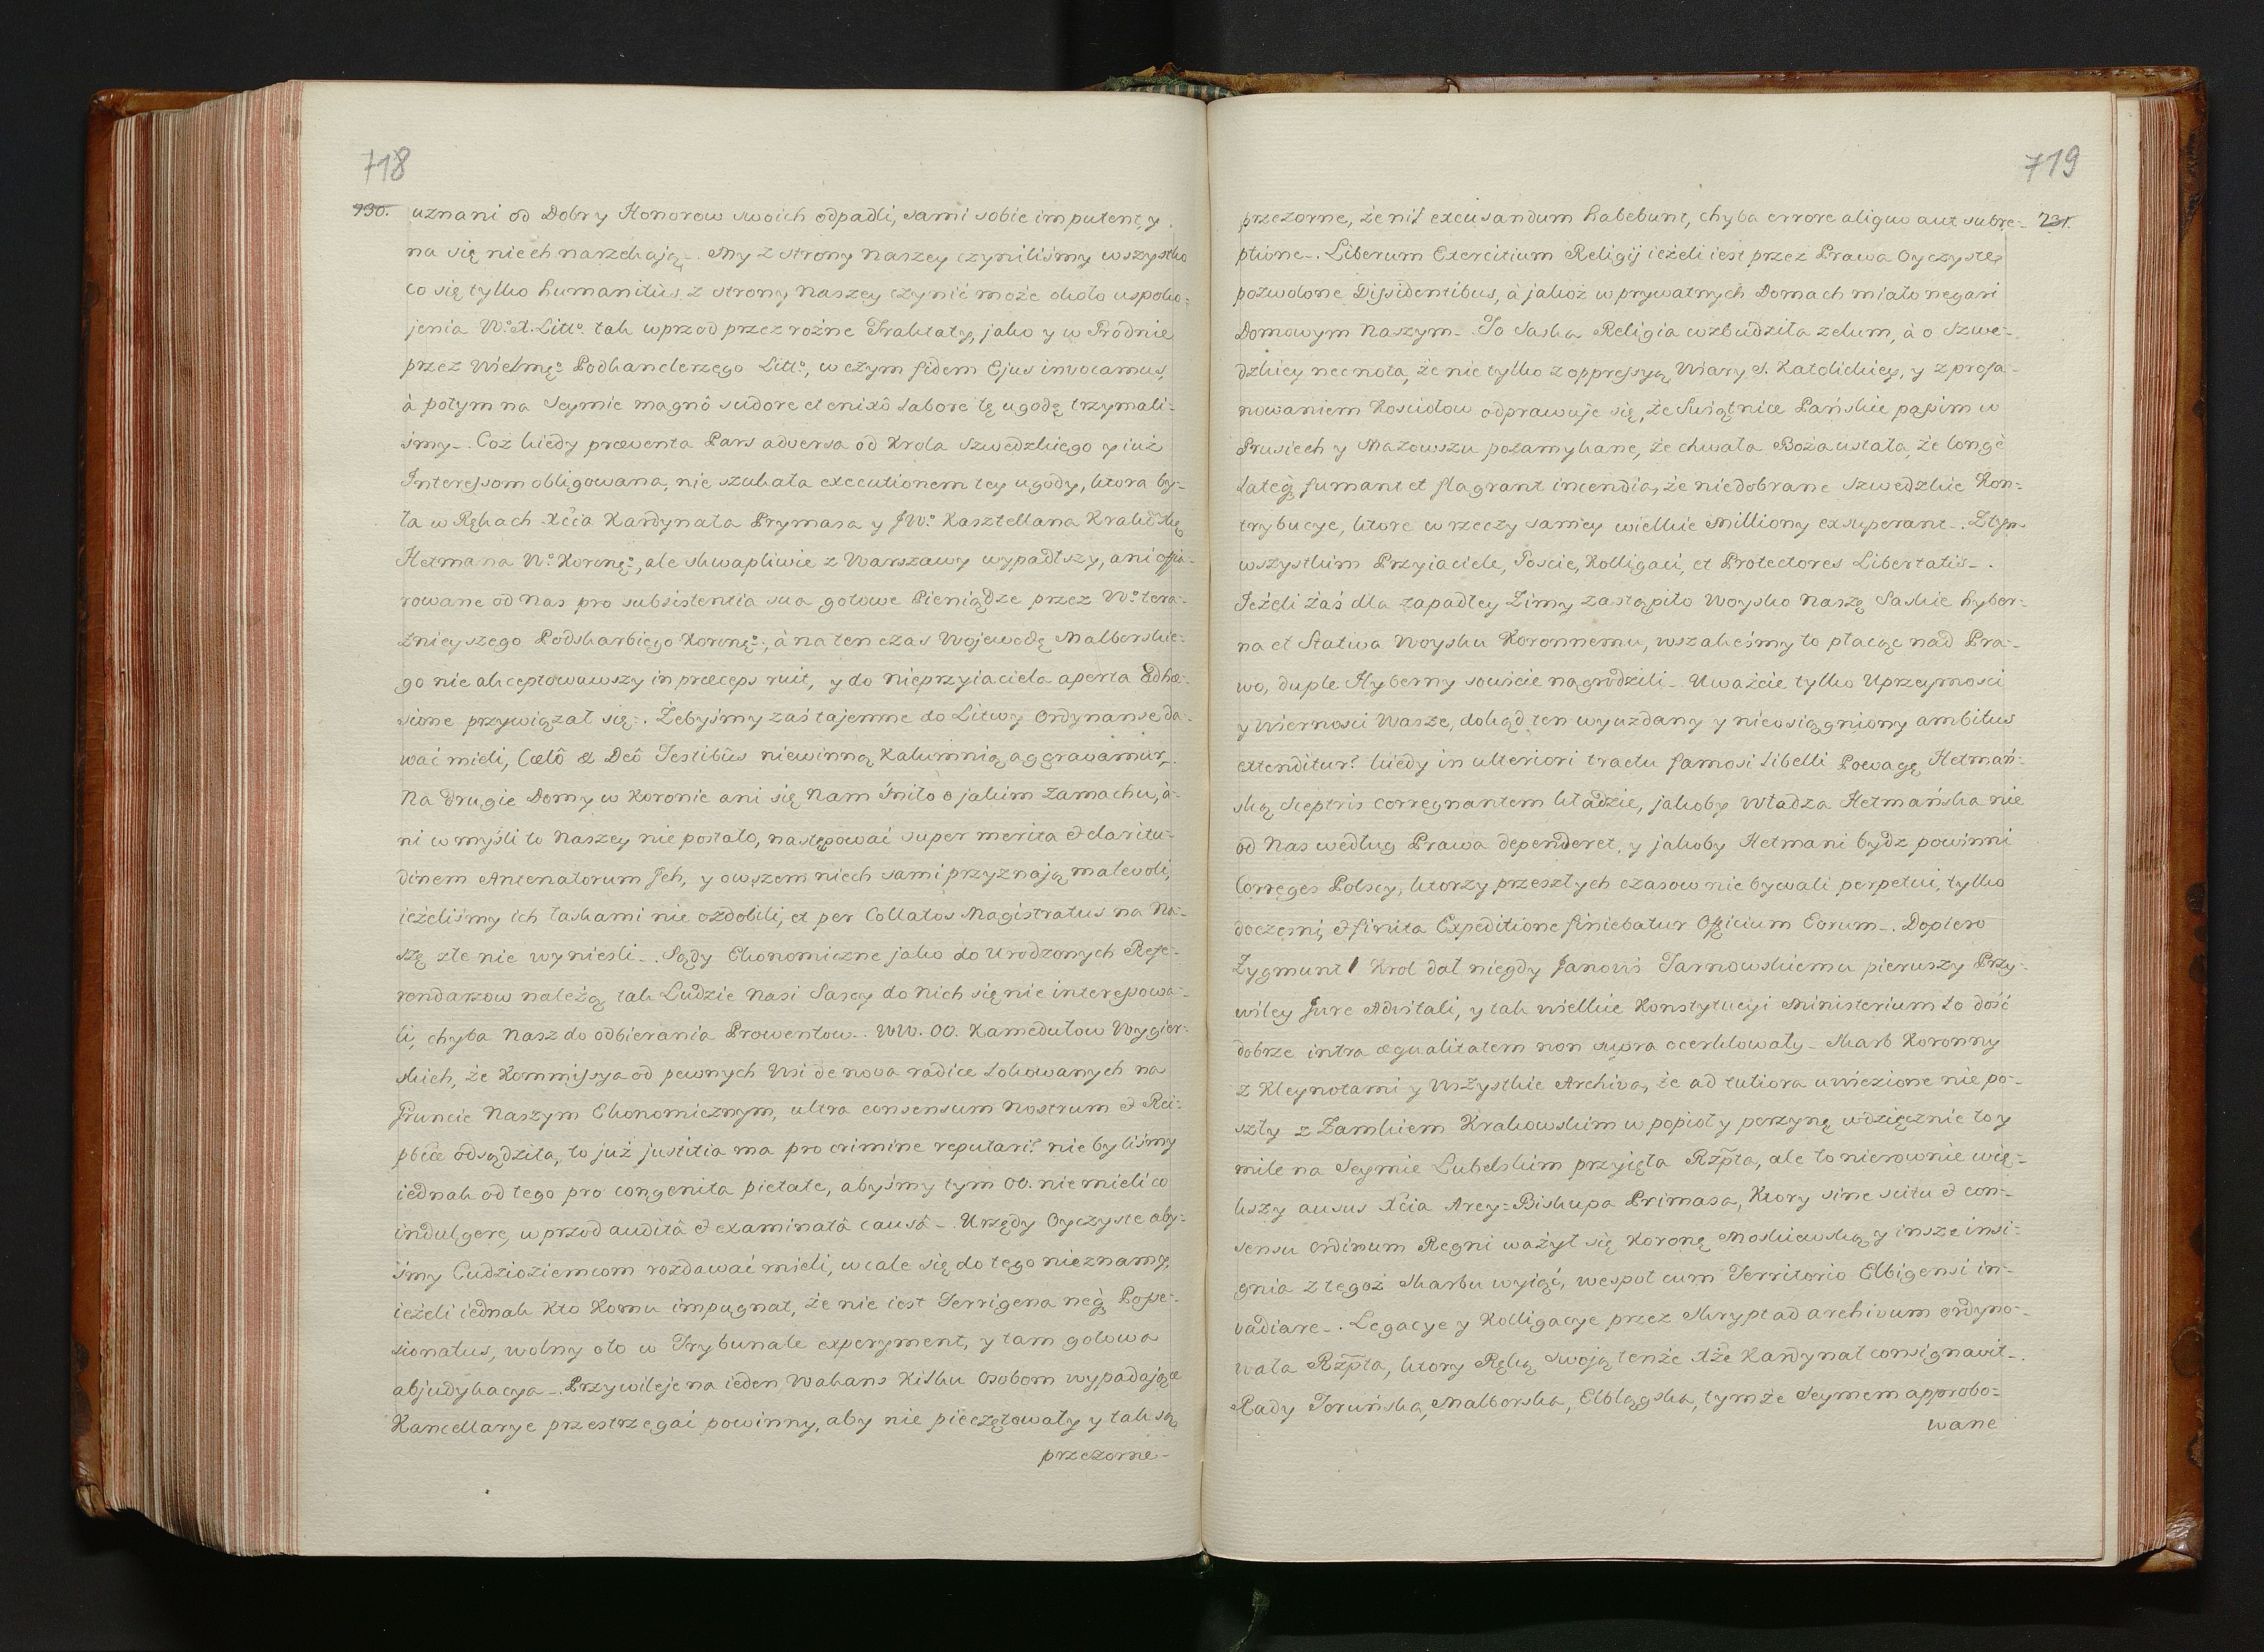 718
730. uznani od Dobr y Honorow swoich odpadli, sami sobie imputent, y
na się niech narzekają_. My z strony Naszey czyniliśmy wszystko
co się tylko humanitùs z strony Naszey czynić może około uspoko=
jenia Wº X. Littº tak wprzod przez rożne Traktaty, jako y w Grodnie
przez Wielmęº Podkanclerzego Littº, w czym fidem Ejus invocamus,
à potym na Seymie magnô sudore et enixô labore tę ugodę trzymali=
śmy_. Coż kiedy præventa Pars adversa od Krola Szwedzkiego y już
Interessom obligowana, nie szukała executionem tey ugody, ktora by=
ła w Rękach Xcia Kardynała Prymasa y JWº Kasztellana Krakowskº
Hetmana Wº Koronęº, ale skwapliwie z Warszawy wypadłszy, ani offia=
rowane od Nas pro subsistentia sua gotowe Pieniądze przez Wº tera=
znieyszego Podskarbiego Koronęº, à na ten czas Wojewodę Malborskie=
go nie akceptowawszy in præceps ruit, y do Nieprzyiaciela aperta Adhæ=
sione przywiązał się_. Żebyśmy zaś tajemne do Litwy Ordynanse da=
wać mieli, Cœlô & Deô Testibûs niewinną Kalumnią aggravamur_.
Na drugie Domy w Koronie ani się Nam śniło o jakim Zamachu, à=
ni w myśli to Naszey nie postało, następować super merita & claritu=
dinem Antenatorum Jch, y owszem niech sami przyznają malevoli,
ieżeliśmy ich łaskami nie ozdobili, et per Collatos Magistratus na Na=
szę złe nie wynieśli_. Sądy Ekonomiczne jako do Urodzonych Refe=
rendarzow należą, tak Ludzie Nasi Sascy do Nich się nie interessowa=
li, chyba Nasz do odbierania Prowentow_. WW. OO. Kamedułow Wygier=
skich, że Kommissya od pewnych Wsi de nova radice lokowanych na
Gruncie Naszym Ekonomicznym, ultra consensum Nostrum & Rei=
pbcæ odsądziła, to już justitia ma pro crimine reputari? nie byliśmy
iednak od tego pro congenita pietate, abyśmy tym OO. nie mieli co
indulgere, wprzod auditâ & examinatâ causâ_. Urzędy Oyczyste aby=
śmy Cudzoziemcom rozdawać mieli, wcale się do tego nieznamy,
ieżeli iednak Kto Komu impugnat, że nie iest Terrigena neq; Posse=
sionatus, wolny oto w Trybunale experyment, y tam gotowa
abjudykacya_. Przywileje na ieden Wakans Kilku Osobom wypadające
Kancellarye przestrzegać powinny, aby nie pieczętowały y tak są
przezorne_
719
przezorne, że nil excusandum habebunt, chyba errore aliquo aut subre= 731.
ptione_. Liberum Exercitium Religij ieżeli iest przez Prawa Oyczyste
pozwolone Dissidentibus, à jakoż w prywatnych Domach miało negari
Domowym Naszym_ To Saska Religia wzbudziła zelum, à o Szwe=
dzkiey nec nota, że nie tylko z oppressyą Wiary S. Katolickiey, y z profa=
nowaniem Kosciołow odprawuje się, że Swiątnice Pańskie passim w
Prusiech y Mazowszu pozamykane, że chwała Boża ustała, że longè
lateq; fumant et flagrant incendia, że niedobrane Szwedzkie Kon=
trybucye, ktore w rzeczy samey wielkie Milliony exsuperant_. Z tym
wszystkim Przyiaciele, Goscie, Kolligaci, et Protectores Libertatis_.
Jeżeli zaś dla zapadłey Zimy zastąpiło Woysko Naszę Saskie hyber=
na et Stativa Woysku Koronnemu, wszakeśmy to płacąc nad Pra=
wo, duple Hyberny sowicie nagrodzili_ Uważcie tylko Uprzeymosci
y Wiernosci Wasze, dokąd ten wyuzdany y nieosiągniony ambitus
extenditur? kiedy in ulteriori tractu famosi Libelli Powagę Hetmań=
ską Sceptris corregnantem kładzie, jakoby Władza Hetmańska nie
od Nas według Prawa dependeret, y jakoby Hetmani bydz powinni
Correges Polscy, ktorzy przeszłych czasow nie bywali perpetui, tylko
doczesni, & finita Expeditione finiebatur Officium Eorum_. Dopiero
Zygmunt I Krol dał niegdy Janowi Tarnowskiemu pierwszy Przy=
wiley Jure Advitali, y tak wielkie Konstytucyi Ministerium to dość
dobrze intra æqualitatem non supra ocerklowały_ Skarb Koronny
z Kleynotami y Wszystkie Archiva, że ad tutiora uwiezione nie po=
szły z Zamkiem Krakowskim w popioł y perzynę wdzięcznie to y
mile na Seymie Lubelskim przyięła Rzpta, ale to nierownie wię=
kszy ausus Xcia Arcy=Biskupa Primasa, Ktory sine scitu & con=
sensu Ordinum Regni ważył się Koronę Moskiewską y insze insi=
gnia z tegoż Skarbu wyiąć, wespoł cum Territorio Elbigensi in=
vadiare_. Legacye y Kolligacye przez Skrypt ad archivum ordyno=
wała Rzpta, ktory Ręką swoją tenże Xże Kardynał consignavit_.
Rady Toruńska, Malborska, Elbłągska, tymże Seymem approbo=
wane